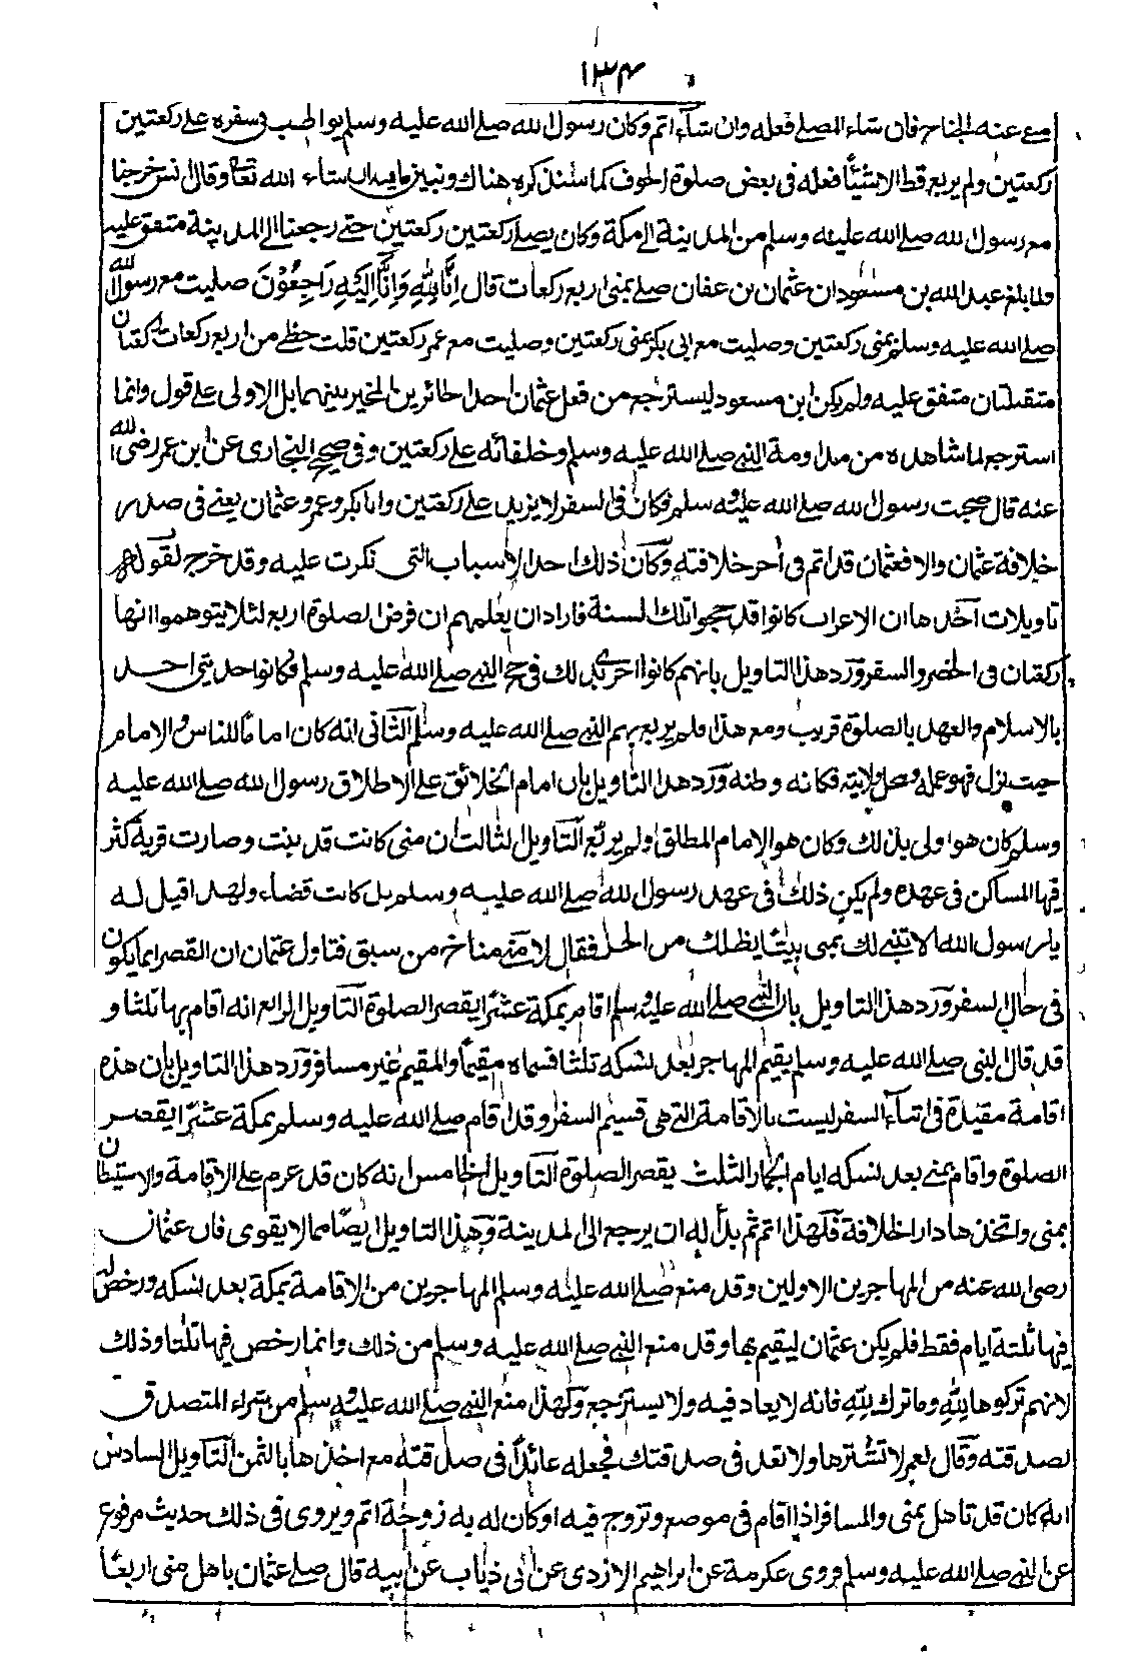 ١٣٤
مع عنه الجناح فان شاء المصلے فعله وان شآء اتم وكان رسول الله صلے الله عليه وسلم يواظب فى سفره علے ركعتين
ركعتين ولم يربع قط الا شيئًا فعله فى بعض صلوة الخوف كما سنذكره هناك ونبين ما فيه ان شاء الله تعا وقال انس خرجنا
مع رسول الله صلے الله عليه وسلم من المدينة الے مكة وكان يصلے ركعتين ركعتين حتے رجعنا الے المدينة متفق عليه
ولما بلغ عبد الله بن مسعود ان عثمان بن عفان صلے بمنى اربع ركعات قال اِنَّا لِلّٰهِ وَاِنَّا اِلَيْهِ رَاجِعُوْنَ صليت مع رسول الله
صلے الله عليه وسلم بمنى ركعتين وصليت مع ابى بكر بمنى ركعتين وصليت مع عمر ركعتين فليت حظے من اربع ركعات ركعتان
متقبلتان متفق عليه ولم يكن ابن مسعود ليسترجع من فعل عثمان احد الجائزين المخير بينهما بل الاولى علے قول وانما
استرجع لما شاهده من مداومة النبے صلے الله عليه وسلم وخلفائه علے ركعتين وفى صحيح البخارى عن ابن عمر رضى الله
عنه قال صحبت رسول الله صلے الله عليه وسلم فكان فى السفر لا يزيد علے ركعتين وابا بكر وعمر وعثمان يعنے فى صدر
خلافة عثمان والا فعثمان قد اتم فى اخر خلافته وكان ذلك احد الاسباب التى انكرت عليه وقد خرج لقوله
تاويلات آحدها ان الاعراب كانوا قد حجوا تلك السنة فاراد ان يعلمهم ان فرض الصلوة اربع لئلا يتوهموا انها
ركعتان فى الحضر والسفر ورد هذا التاويل بانهم كانوا احرى بذلك فى حج النبے صلے الله عليه وسلم فكانوا حديثى احد
بالاسلام والعهد بالصلوة قريب ومع هذا فلم يربع بهم النبے صلے الله عليه وسلم الثانى انه كان اماما للناس والامام
حيث نزل فهو عمله ومحل ولايته فكانه وطنه ورد هذا التاويل بان امام الخلائق علے الاطلاق رسول الله صلے الله عليه
وسلم كان هو اولى بذلك وكان هو الامام المطلق ولم يربع التاويل الثالث ان منى كانت قد بنيت وصارت قرية كثر
فيها المساكن فى عهده ولم يكن ذلك فى عهد رسول الله صلے الله عليه وسلم بل كانت فضاء ولهذا قيل له
يا رسول الله الا نبنے لك بمنى بيتا يظلك من الحر فقال لا منے مناخ من سبق فتاول عثمان ان القصر انما يكون
فى حال السفر ورد هذا التاويل بان النبے صلے الله عليه وسلم اقام بمكة عشرًا يقصر الصلوة التاويل الرابع انه اقام بها ثلثا و
قد قال النبى صلے الله عليه وسلم يقيم المهاجر بعد نسكه ثلثا فسماه مقيمًا والمقيم غير مسافر ورد هذا التاويل بان هذه
اقامة مقيدة فى اثناء السفر ليست بالاقامة التے هى قسيم السفر وقد اقام صلے الله عليه وسلم بمكة عشرًا يقصر
الصلوة واقام بمنے بعد نسكه ايام الجمار الثلث يقصر الصلوة التاويل الخامس انه كان قد عزم علے الاقامة والاستيطان
بمنى واتخذها دار الخلافة فلهذا اتم ثم بدا له ان يرجع الى المدينة وهذا التاويل ايضا مما لا يقوى فان عثمان
رضى الله عنه من المهاجرين الاولين وقد منع صلے الله عليه وسلم المهاجرين من الاقامة بمكة بعد نسكه ورخص له
فيها ثلثة ايام فقط فلم يكن عثمان ليقيم بها وقد منع النبے صلے الله عليه وسلم من ذلك وانما رخص فيها ثلثا وذلك
لانهم تركوها لِلّٰهِ وما ترك لِلّٰهِ فانه لا يعاد فيه ولا يسترجع ولهذا منع النبے صلے الله عليه وسلم من شراء المتصدق
لصدقته وقال لعمر لا تشترها ولا تعد فى صدقتك فجعله عائدًا فى صدقته مع اخذها بالثمن التاويل السادس
انه كان قد تاهل بمنى والمسافر اذا اقام فى موضع وتزوج فيه او كان له به زوجة اتم ويروى فى ذلك حديث مرفوع
عن النبے صلے الله عليه وسلم فروى عكرمة عن ابراهيم الازدى عن ابى ذياب عن ابيه قال صلے عثمان باهل منى اربعًا